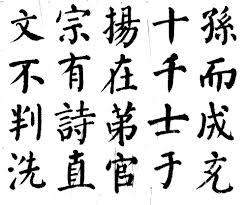 孫而成充
十千士于
揚在弟官
宗有詩直
文不判洗